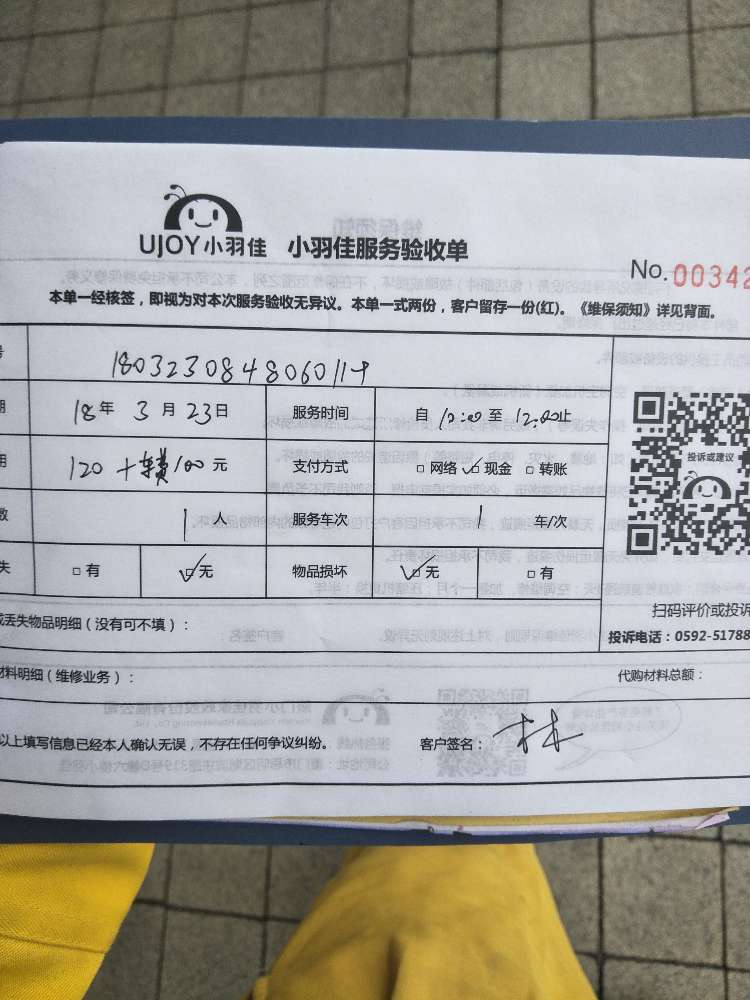 UJOY小羽佳 小羽佳服务验收单
No. 00342
本单一经核签，即视为对本次服务验收无异议。本单一式两份，客户留存一份(红)。《维保须知》详见背面。
号 1803230848060119
期 18年 3月 23日 服务时间 自 12:00 至 12:00止
用 120 + 车费100 元 支付方式 □ 网络 ☑ 现金 □ 转账
数 1 人 服务车次 1 车/次
失 □ 有 ☑ 无 物品损坏 ☑ 无 □ 有
投诉或建议
扫码评价或投诉
投诉电话：0592-51788
或丢失物品明细（没有可不填）：
材料明细（维修业务）： 代购材料总额：
以上填写信息已经本人确认无误，不存在任何争议纠纷。 客户签名： 林